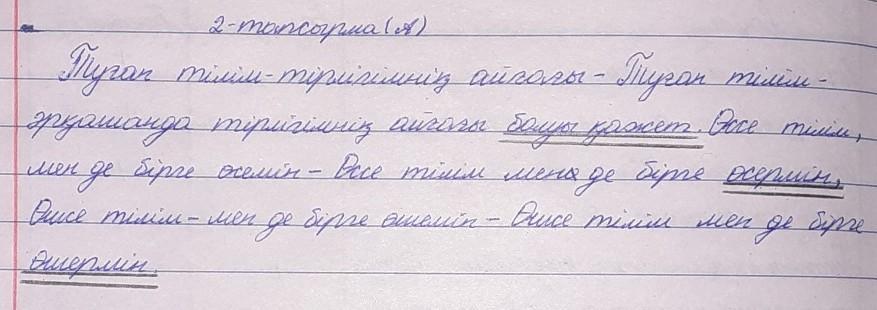 2-тапсырма(А)
Туған тілім-тірлігімнің айғағы - Туған тілім-
әрқашанда тірлігімнің айғағы болуы қажет. Өссе тілім,
мен де бірге өсемін - Өссе тілім мен де бірге өсермін,
Өшсе тілім - мен де бірге өшемін - Өшсе тілім мен де бірге
өшермін.